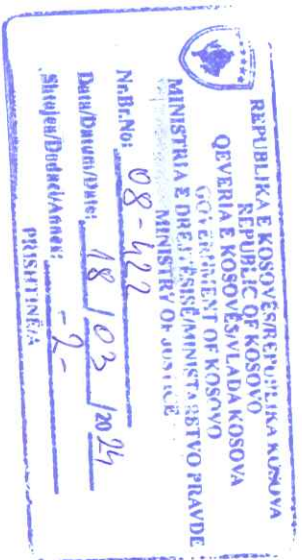 REPUBLIKA E KOSOVËS/REPUBLIKA KOSOVA
REPUBLIC OF KOSOVO
QEVERIA E KOSOVËS/VLADA KOSOVA
GOVERNMENT OF KOSOVO
MINISTRIA E DREJTËSISË/MINISTARSTVO PRAVDE
MINISTRY OF JUSTICE
Nr.Br.No: 08-422
Data/Datum/Date: 18 / 03 / 2024
Shtojca/Dodaci/Annex: -2-
PRISHTINË/A